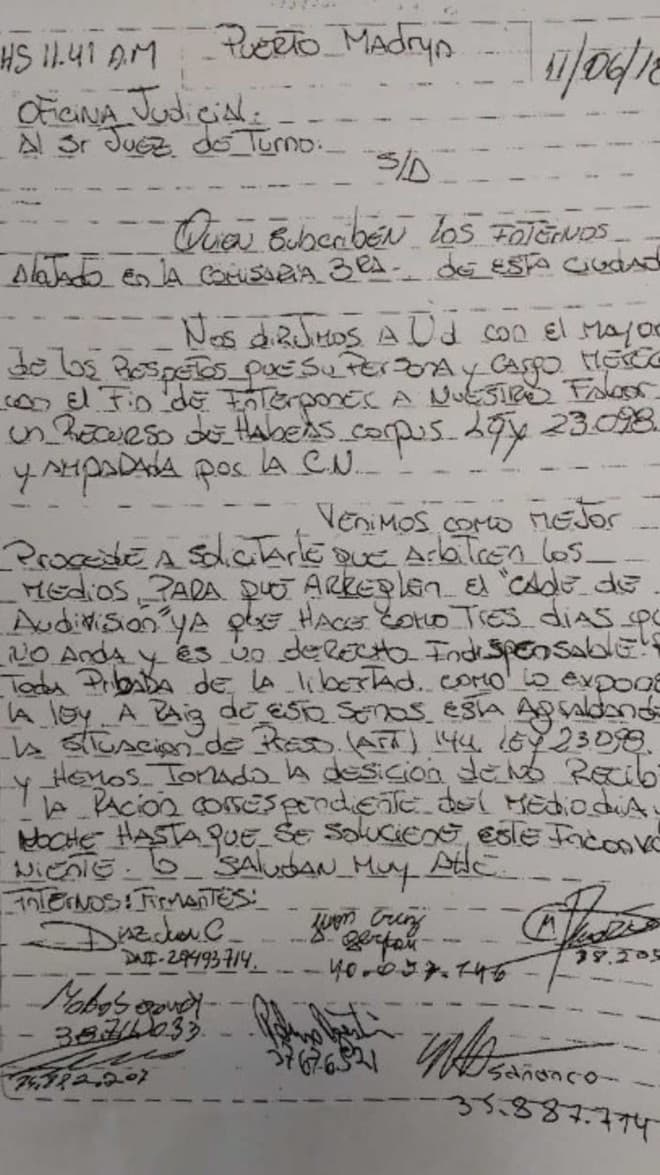 HS 11.41 A.M PUERTO MAdryn 11/06/18
OFICINA Judicial.
Al Sr Juez de Turno.
S/D
Quien Subscriben los Internos
Alojado en la COMISARIA 3RA. de ESTA CIUDAD
Nos diRJimos A Ud con el Mayor
de los Respetos que su Persona y CARgo
con el Fin de Interponer A NUESTRO Fabor
un Recurso de Habeas corpus Ley 23.098.
y AMPARADA por la C.N.
Venimos como MEJOR
Procede A Solicitarle que Arbitren los
Medios, PARA que ARReglen el "CABLE DE
Audivisión" YA que HACE COMO TRES dias
NO Anda y es un derecho Indispensable
Toda Pribada de la libertad. como lo expone
la ley A Raiz de esto Senos está
la Situacion de Preso (ART) 144 LEY 23098.
y Hemos Tomado la desición de No
la Racion correspondiente del Medio dia y
Noche HASTA que se Solucione este
niente. lo SAludan Muy Atte.
INTERNOS: FIRMANTES:
Diaz Juan C
DNI-29493714.
Juan Cruz
38.205
Sananco
35.887.774